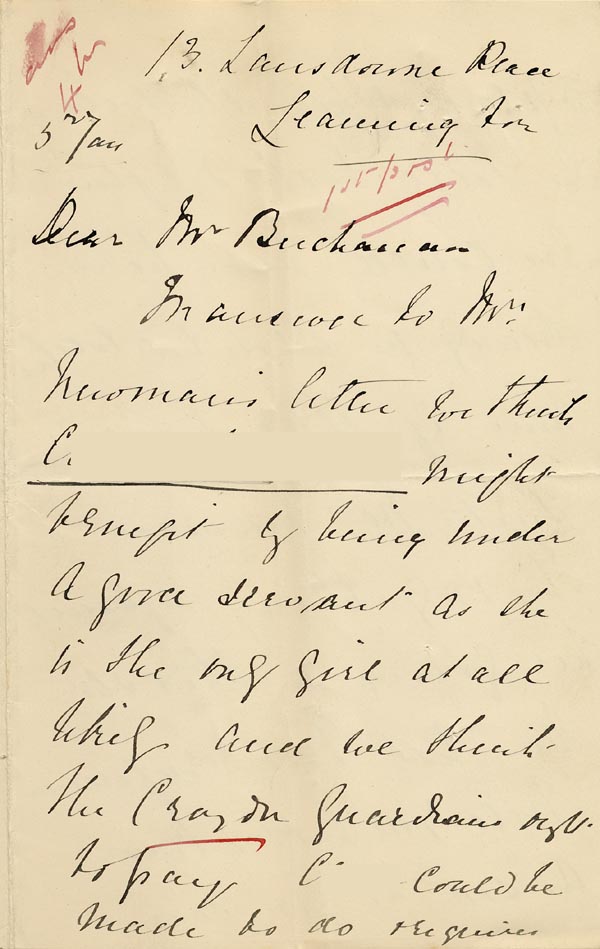 ans
4 Jan
13. Lansdowne Place
Leamington
5th Jan
1st post
Dear Mr Buchanan
In answer to Mr.
Newman's letter we think
C.
might
benefit by being under
a good servant as she
is the only girl at all
likely and we think
the Croydon Guardians ought
to pay C could be
made to do requires